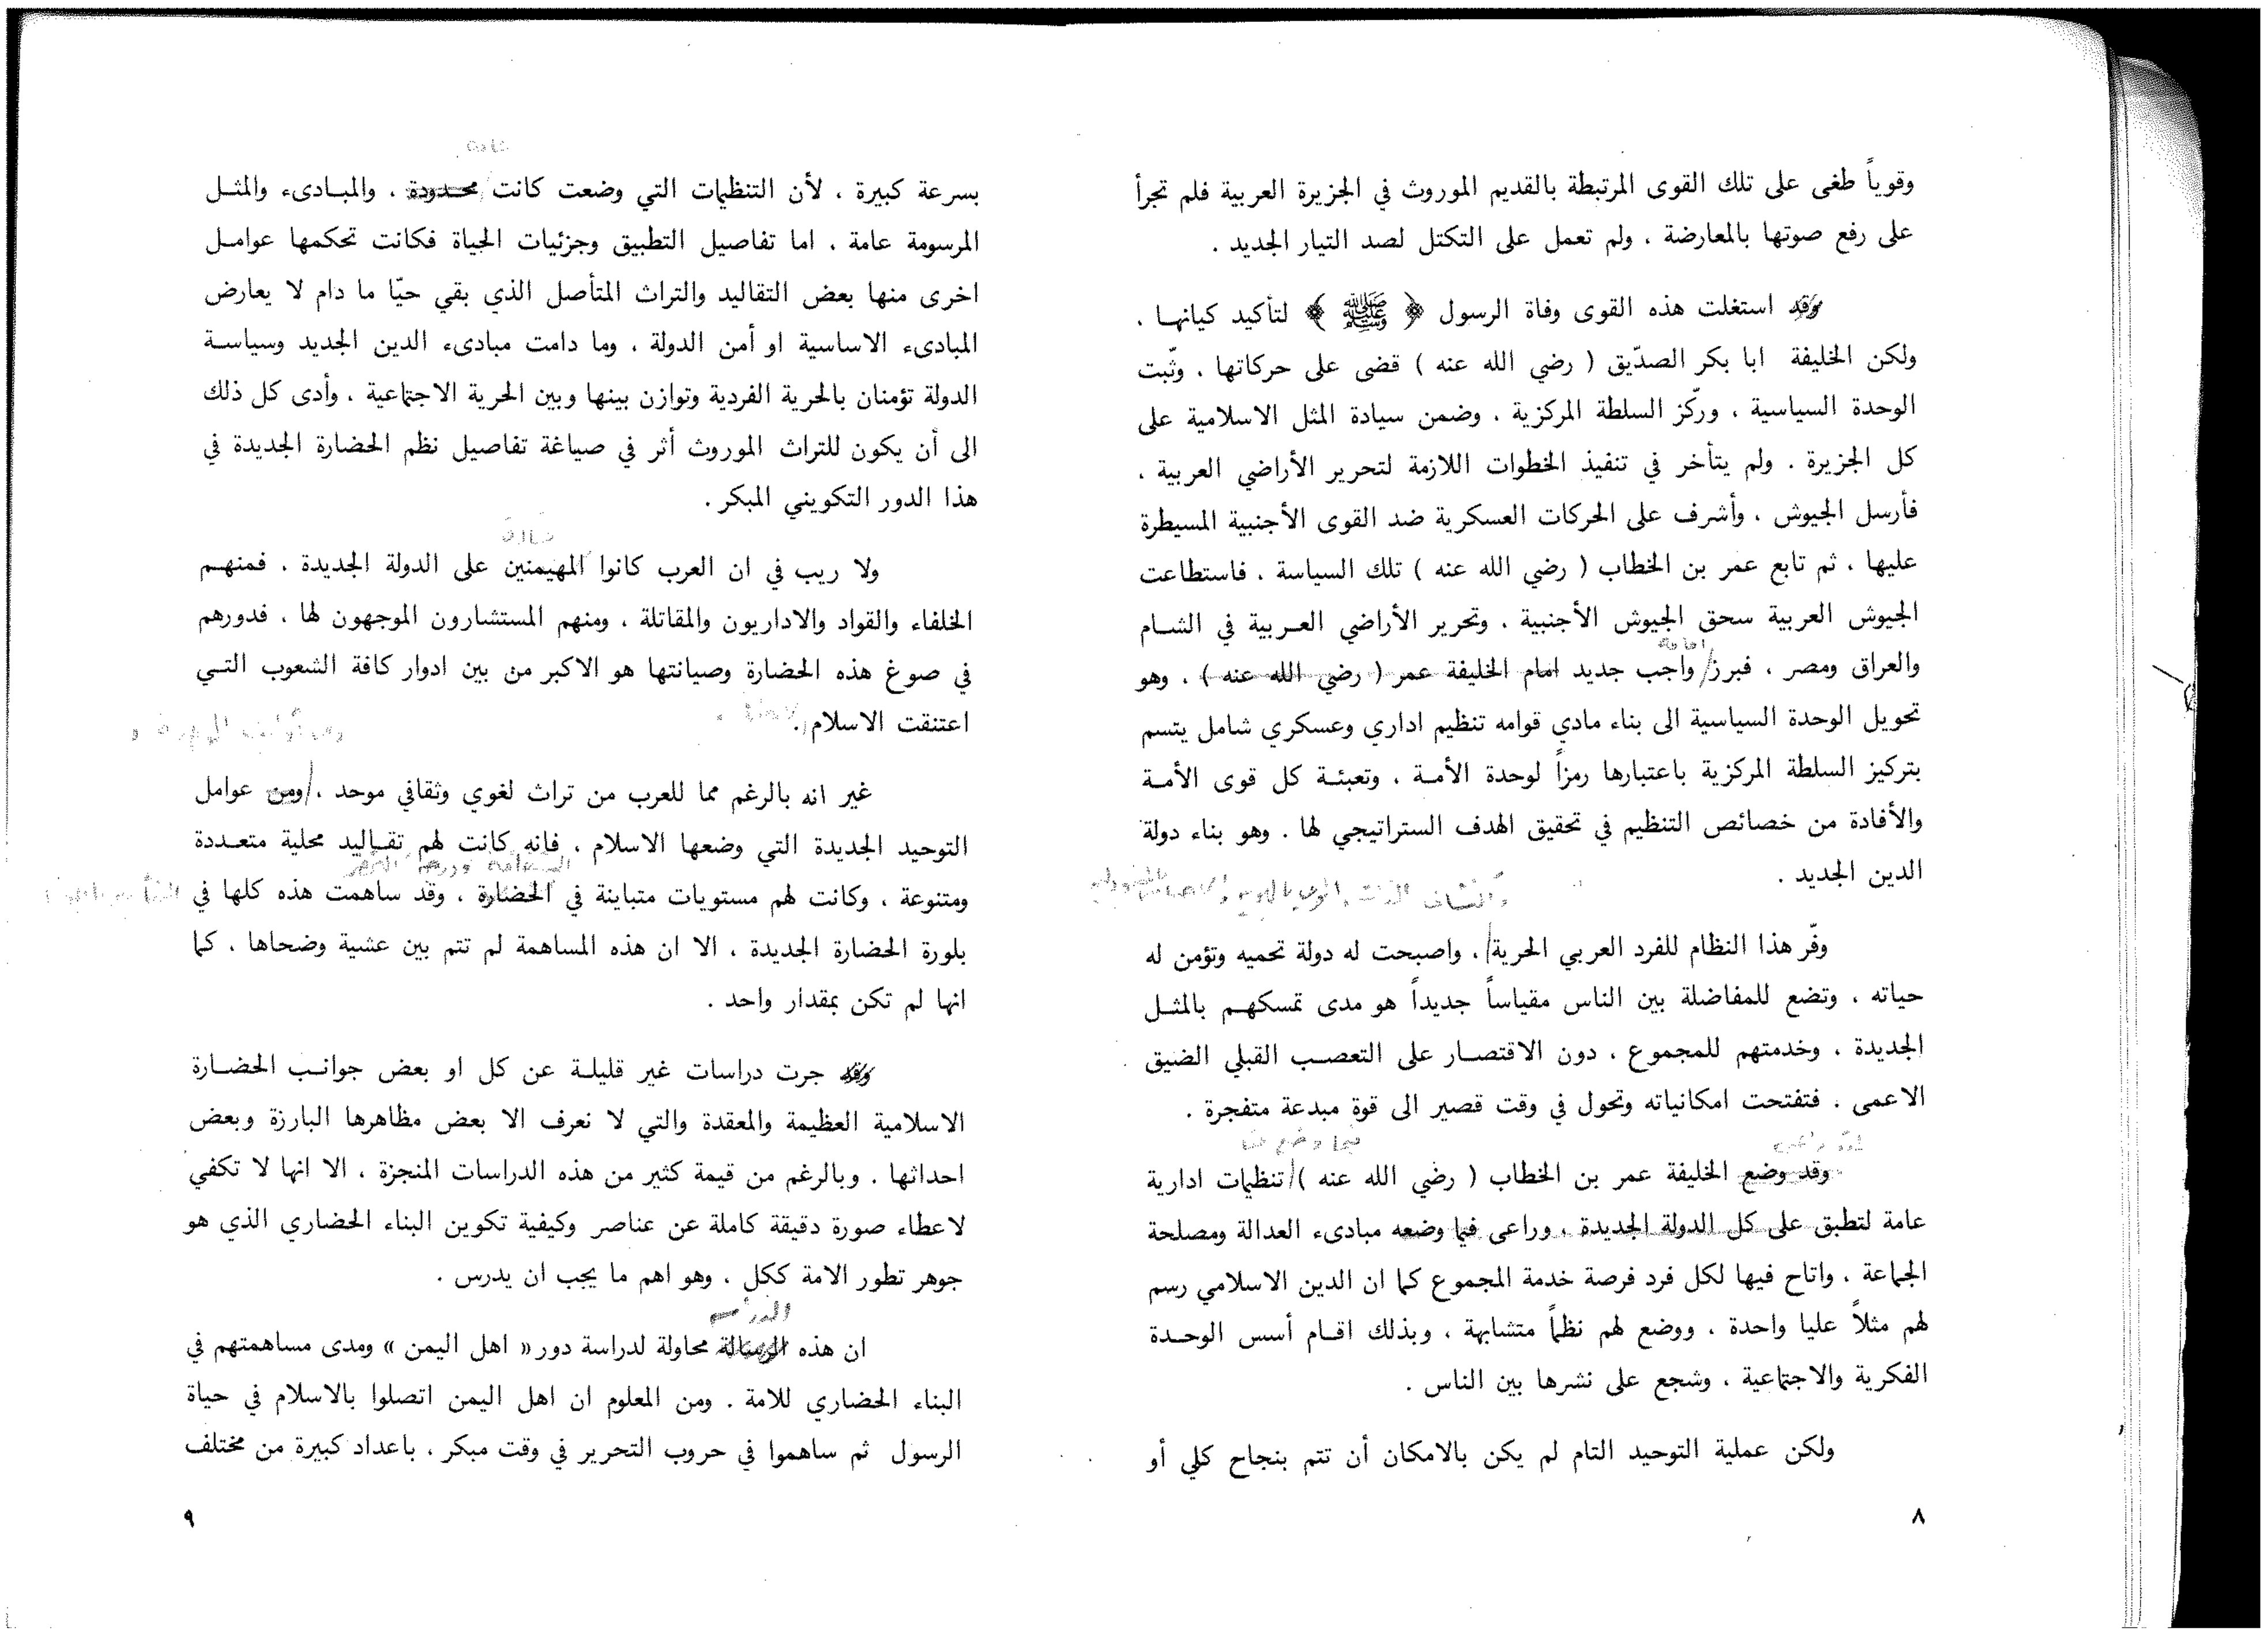 وقوياً طغى على تلك القوى المرتبطة بالقديم الموروث في الجزيرة العربية فلم تجرأ
على رفع صوتها بالمعارضة ، ولم تعمل على التكتل لصد التيار الجديد .
وقد استغلت هذه القوى وفاة الرسول ﴿ ﷺ ﴾ لتأكيد كيانهـا .
ولكن الخليفة ابا بكر الصدّيق ( رضي الله عنه ) قضى على حركاتها ، وثّبت
الوحدة السياسية ، وركّز السلطة المركزية ، وضمن سيادة المثل الاسلامية على
كل الجزيرة . ولم يتأخر في تنفيذ الخطوات اللازمة لتحرير الأراضي العربية ،
فأرسل الجيوش ، وأشرف على الحركات العسكرية ضد القوى الأجنبية المسيطرة
عليها ، ثم تابع عمر بن الخطاب ( رضي الله عنه ) تلك السياسة ، فاستطاعت
الجيوش العربية سحق الجيوش الأجنبية ، وتحرير الأراضي العـربية في الشـام
والعراق ومصر ، فبرز واجب جديد امام الخليفة عمر ( رضي الله عنه ) ، وهو
تحويل الوحدة السياسية الى بناء مادي قوامه تنظيم اداري وعسكري شامل يتسم
بتركيز السلطة المركزية باعتبارها رمزاً لوحدة الأمـة ، وتعبئـة كل قوى الأمـة
والأفادة من خصائص التنظيم في تحقيق الهدف الستراتيجي لها . وهو بناء دولة
الدين الجديد .
وفّر هذا النظام للفرد العربي الحرية ، واصبحت له دولة تحميه وتؤمن له
حياته ، وتضع للمفاضلة بين الناس مقياساً جديداً هو مدى تمسكهـم بالمثـل
الجديدة ، وخدمتهم للمجموع ، دون الاقتصـار على التعصـب القبلي الضيق
الاعمى . فتفتحت امكانياته وتحول في وقت قصير الى قوة مبدعة متفجرة .
وقد وضع الخليفة عمر بن الخطاب ( رضي الله عنه ) تنظيمات ادارية
عامة لتطبق على كل الدولة الجديدة ، وراعى فيما وضعه مبادىء العدالة ومصلحة
الجماعة ، واتاح فيها لكل فرد فرصة خدمة المجموع كما ان الدين الاسلامي رسم
لهم مثلاً عليا واحدة ، ووضع لهم نظماً متشابهة ، وبذلك اقـام أسس الوحـدة
الفكرية والاجتماعية ، وشجع على نشرها بين الناس .
ولكن عملية التوحيد التام لم يكن بالامكان أن تتم بنجاح كلي أو
٨
بسرعة كبيرة ، لأن التنظيمات التي وضعت كانت محـدودة ، والمبـادىء والمثـل
المرسومة عامة ، اما تفاصيل التطبيق وجزئيات الحياة فكانت تحكمها عوامـل
اخرى منها بعض التقاليد والتراث المتأصل الذي بقي حيّا ما دام لا يعارض
المبادىء الاساسية او أمن الدولة ، وما دامت مبادىء الدين الجديد وسياسـة
الدولة تؤمنان بالحرية الفردية وتوازن بينها وبين الحرية الاجتماعية ، وأدى كل ذلك
الى أن يكون للتراث الموروث أثر في صياغة تفاصيل نظم الحضارة الجديدة في
هذا الدور التكويني المبكر .
ولا ريب في ان العرب كانوا المهيمنين على الدولة الجديدة ، فمنهـم
الخلفاء والقواد والاداريون والمقاتلة ، ومنهم المستشارون الموجهون لها ، فدورهم
في صوغ هذه الحضارة وصيانتها هو الاكبر من بين ادوار كافة الشعوب التـي
اعتنقت الاسلام .
غير انه بالرغم مما للعرب من تراث لغوي وثقافي موحد ، ومن عوامل
التوحيد الجديدة التي وضعها الاسلام ، فإنه كانت لهم تقـاليد محلية متعـددة
ومتنوعة ، وكانت لهم مستويات متباينة في الحضارة ، وقد ساهمت هذه كلها في
بلورة الحضارة الجديدة ، الا ان هذه المساهمة لم تتم بين عشية وضحاها ، كما
انها لم تكن بمقدار واحد .
وقد جرت دراسات غير قليلـة عن كل او بعض جوانـب الحضـارة
الاسلامية العظيمة والمعقدة والتي لا نعرف الا بعض مظاهرها البارزة وبعض
احداثها . وبالرغم من قيمة كثير من هذه الدراسات المنجزة ، الا انها لا تكفي
لاعطاء صورة دقيقة كاملة عن عناصر وكيفية تكوين البناء الحضاري الذي هو
جوهر تطور الامة ككل ، وهو اهم ما يجب ان يدرس .
الدراسة
ان هذه الرسالة محاولة لدراسة دور « اهل اليمن » ومدى مساهمتهم في
البناء الحضاري للامة . ومن المعلوم ان اهل اليمن اتصلوا بالاسلام في حياة
الرسول ثم ساهموا في حروب التحرير في وقت مبكر ، باعداد كبيرة من مختلف
٩